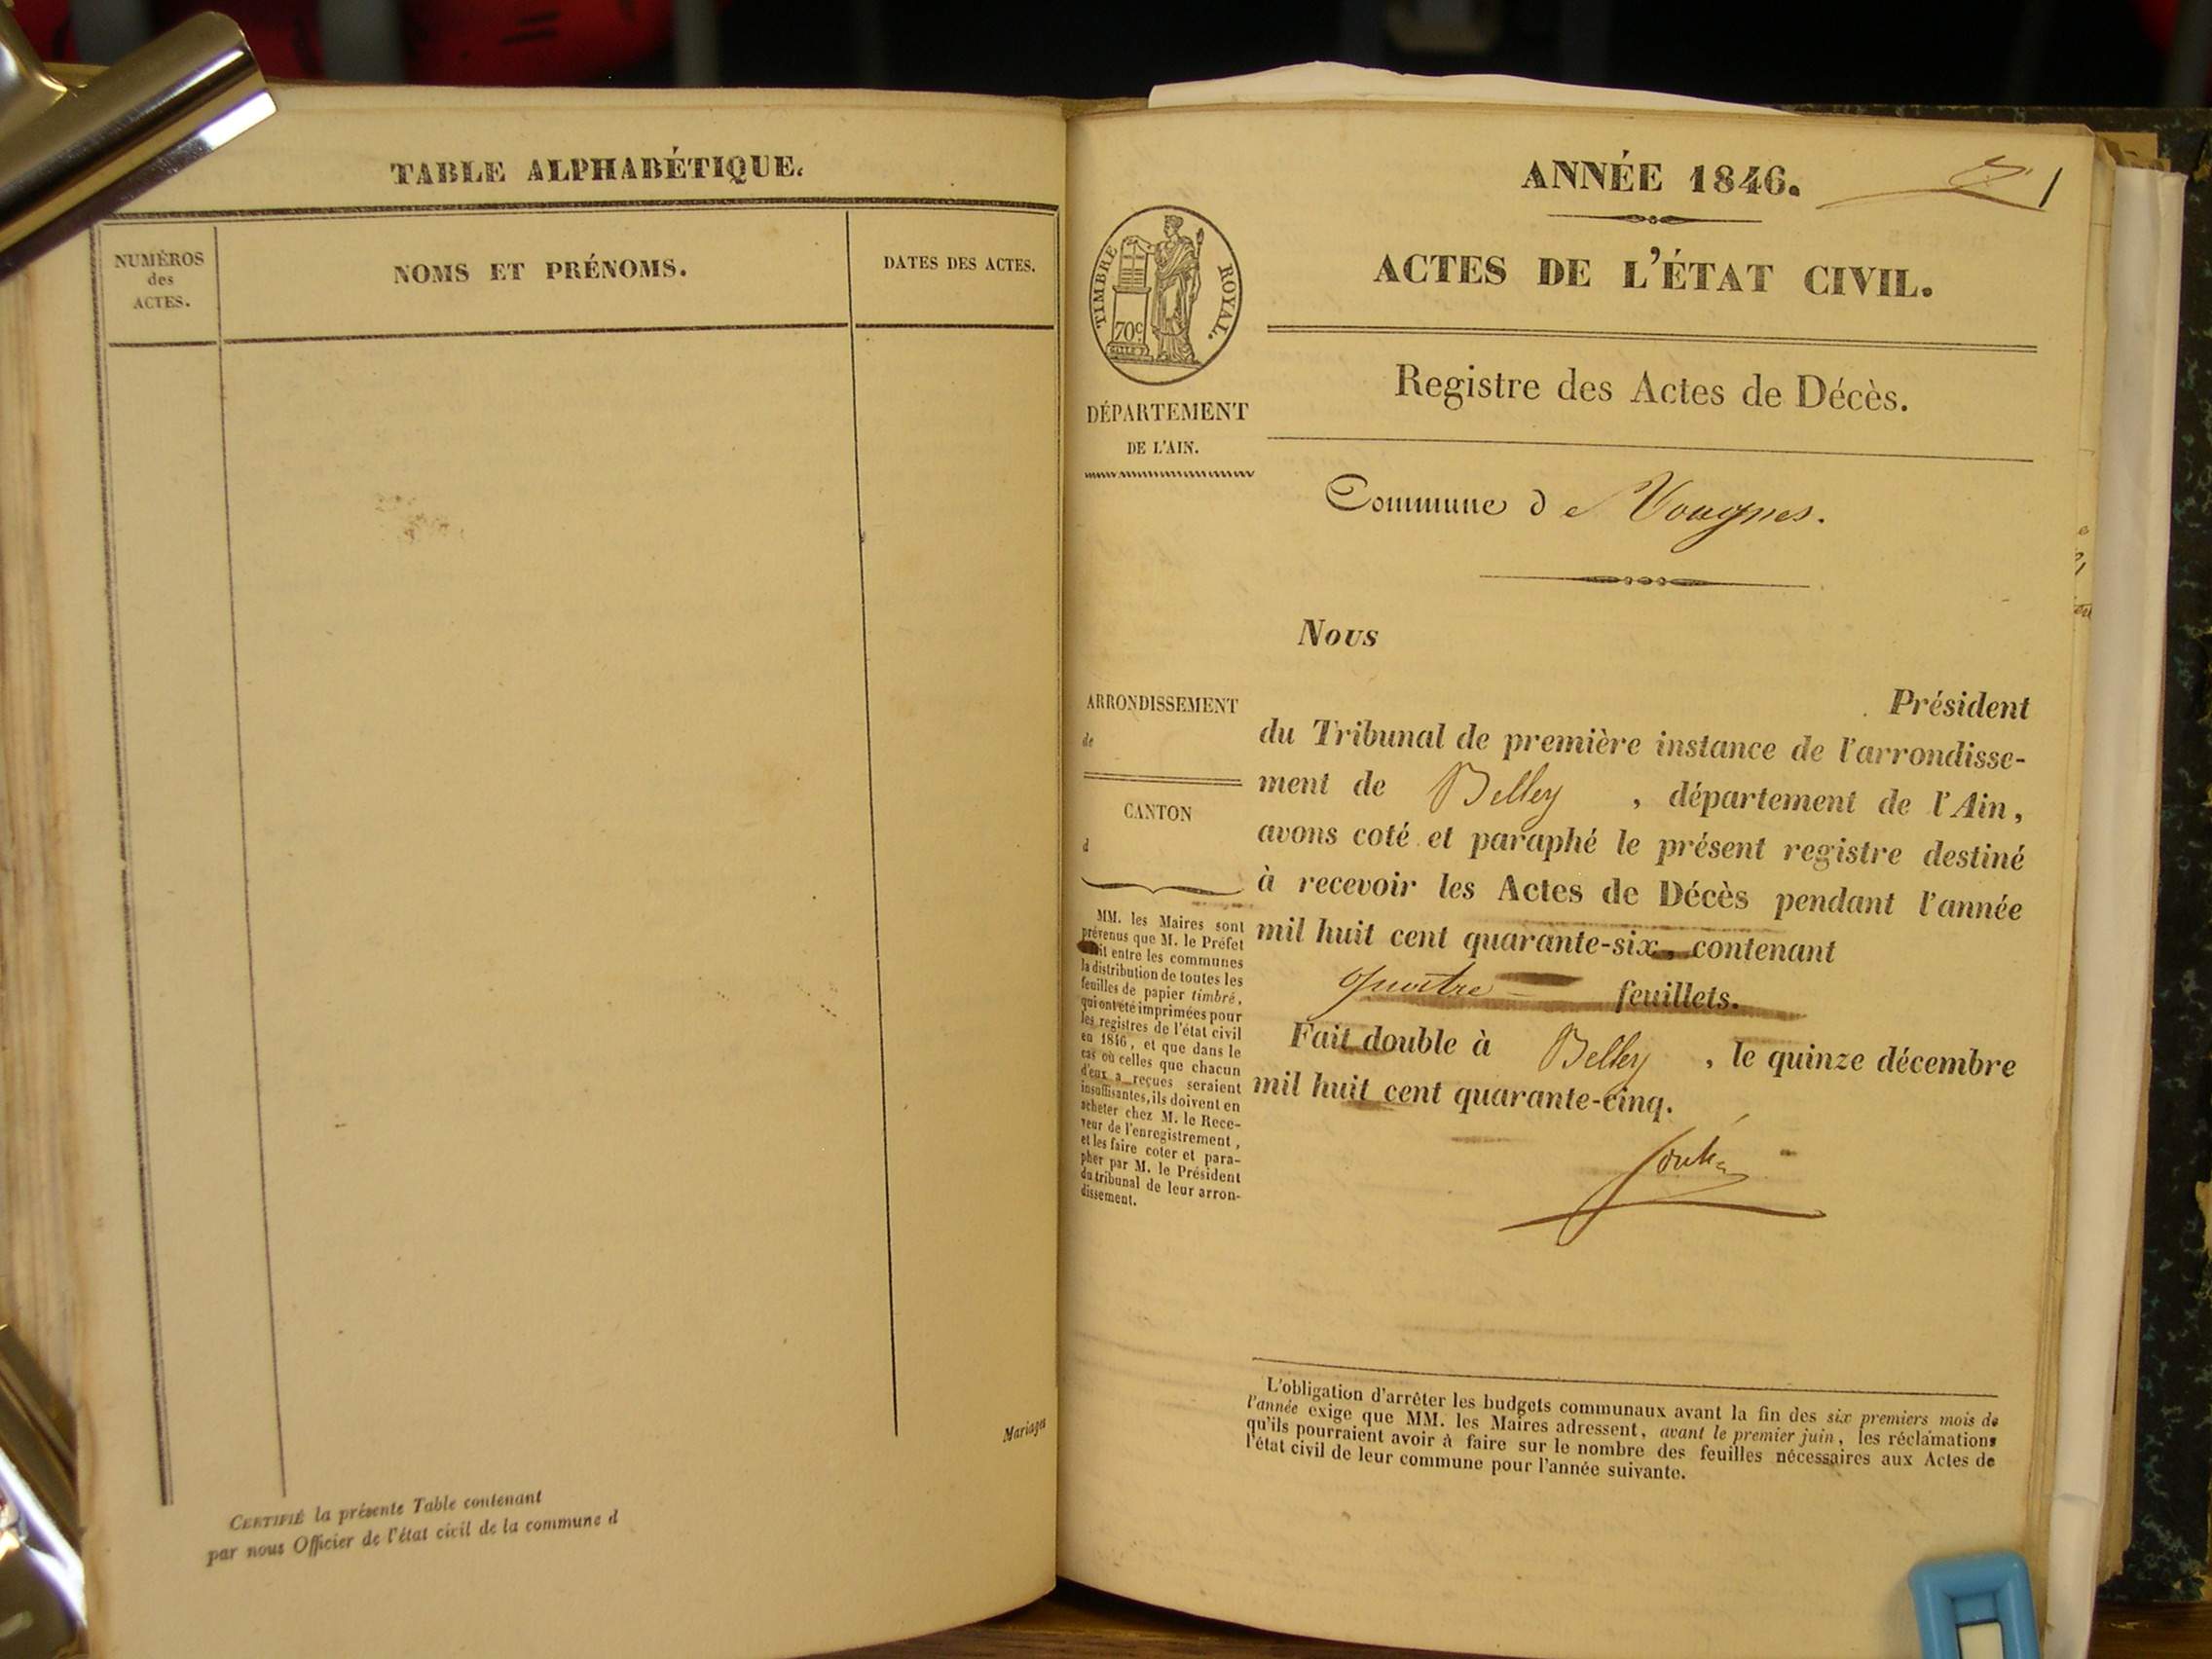 TABLE ALPHABÉTIQUE.
NUMÉROS
des
ACTES.
NOMS ET PRÉNOMS.
DATES DES ACTES.
Mariages
CERTIFIÉ la présente Table contenant
par nous Officier de l'état civil de la commune d
ANNÉE 1846.
1
ACTES DE L'ÉTAT CIVIL.
TIMBRE ROYAL.
70c
Registre des Actes de Décès.
DÉPARTEMENT
DE L'AIN.
Commune de Vongnes.
Nous
Président
du Tribunal de première instance de l'arrondisse-
ment de Belley , département de l'Ain,
avons coté et paraphé le présent registre destiné
à recevoir les Actes de Décès pendant l'année
mil huit cent quarante-six, contenant
quatre feuillets.
Fait double à Belley , le quinze décembre
mil huit cent quarante-cinq.
ARRONDISSEMENT
de
CANTON
d
MM. les Maires sont
prévenus que M. le Préfet
entre les communes
la distribution de toutes les
feuilles de papier timbré,
qui ont été imprimées pour
les registres de l'état civil
en 1846, et que dans le
cas où celles que chacun
d'eux a reçues seraient
insuffisantes, ils doivent en
acheter chez M. le Rece-
veur de l'enregistrement,
et les faire coter et para-
pher par M. le Président
du tribunal de leur arron-
dissement.
L'obligation d'arrêter les budgets communaux avant la fin des six premiers mois de
l'année exige que MM. les Maires adressent, avant le premier juin, les réclamations
qu'ils pourraient avoir à faire sur le nombre des feuilles nécessaires aux Actes de
l'état civil de leur commune pour l'année suivante.